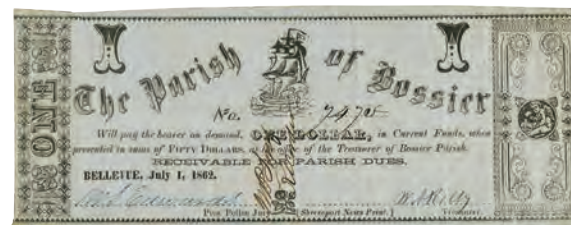 I I
ONE
The Parish of Bossier
No.
Will pay the bearer on demand, ONE DOLLAR, in Current Funds, when
presented in sums of FIFTY DOLLARS, at the office of the Treasurer of Bossier Parish.
RECEIVABLE FOR PARISH DUES.
BELLEVUE, July 1, 1862.
Pres. Police Jury. [Shreveport News Print.] Treasurer.